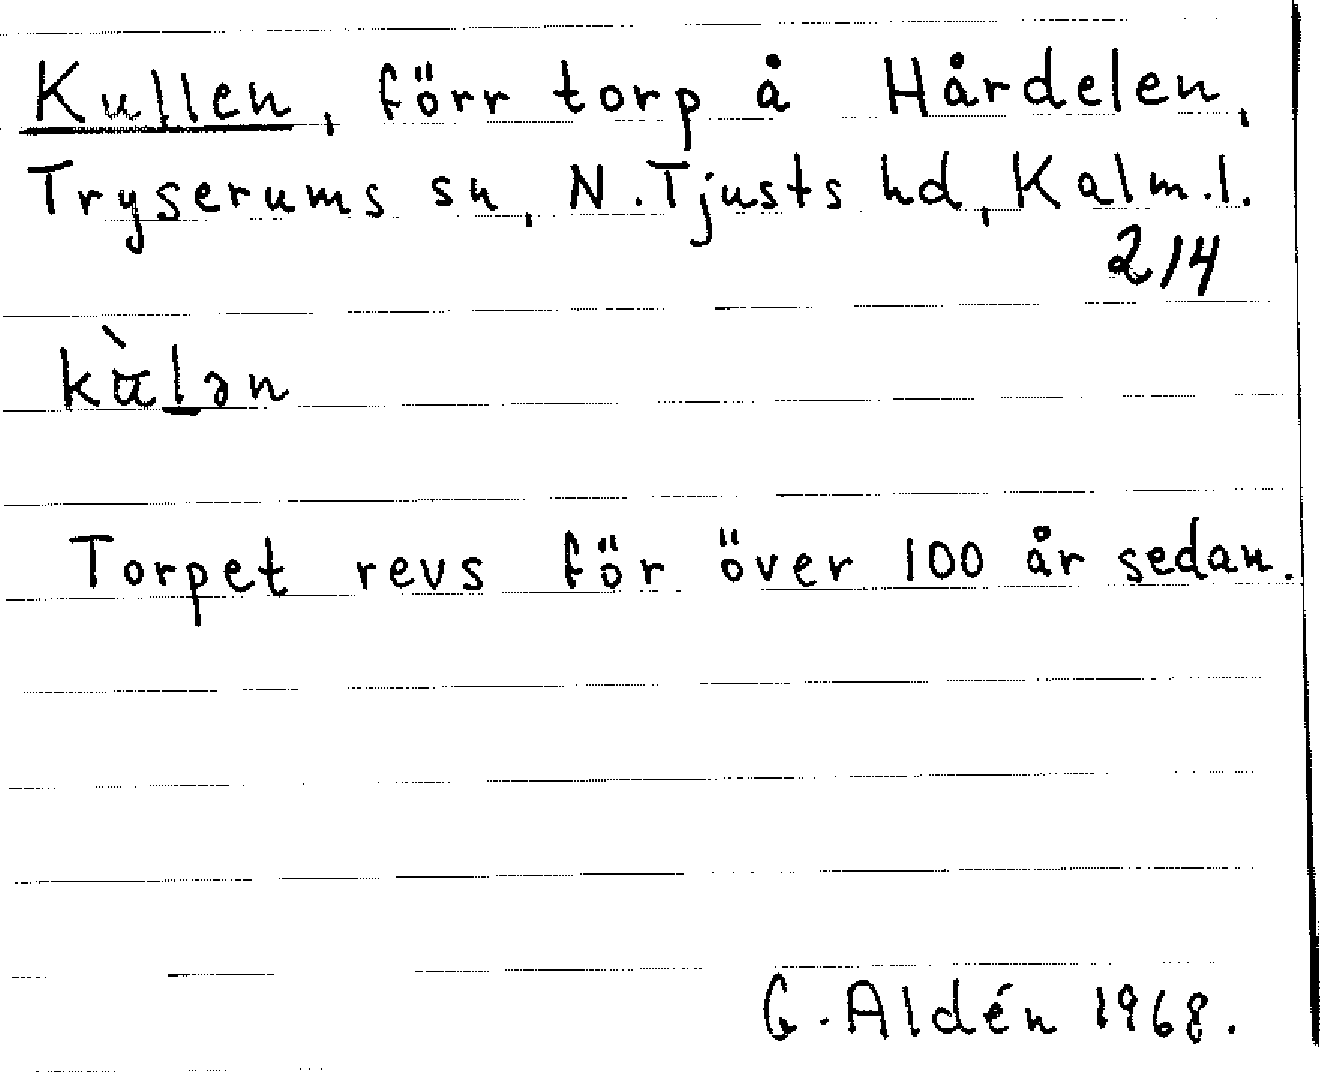 Kullen, förr torp å Hårdelen,
Tryserums sn, N. Tjusts hd, Kalm.l.
214
Torpet revs för över 100 år sedan.
G. Aldén 1968.